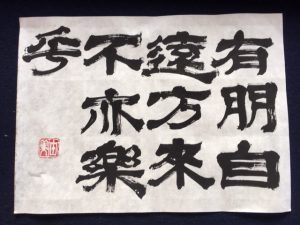 有朋自
遠方來
不亦樂
乎